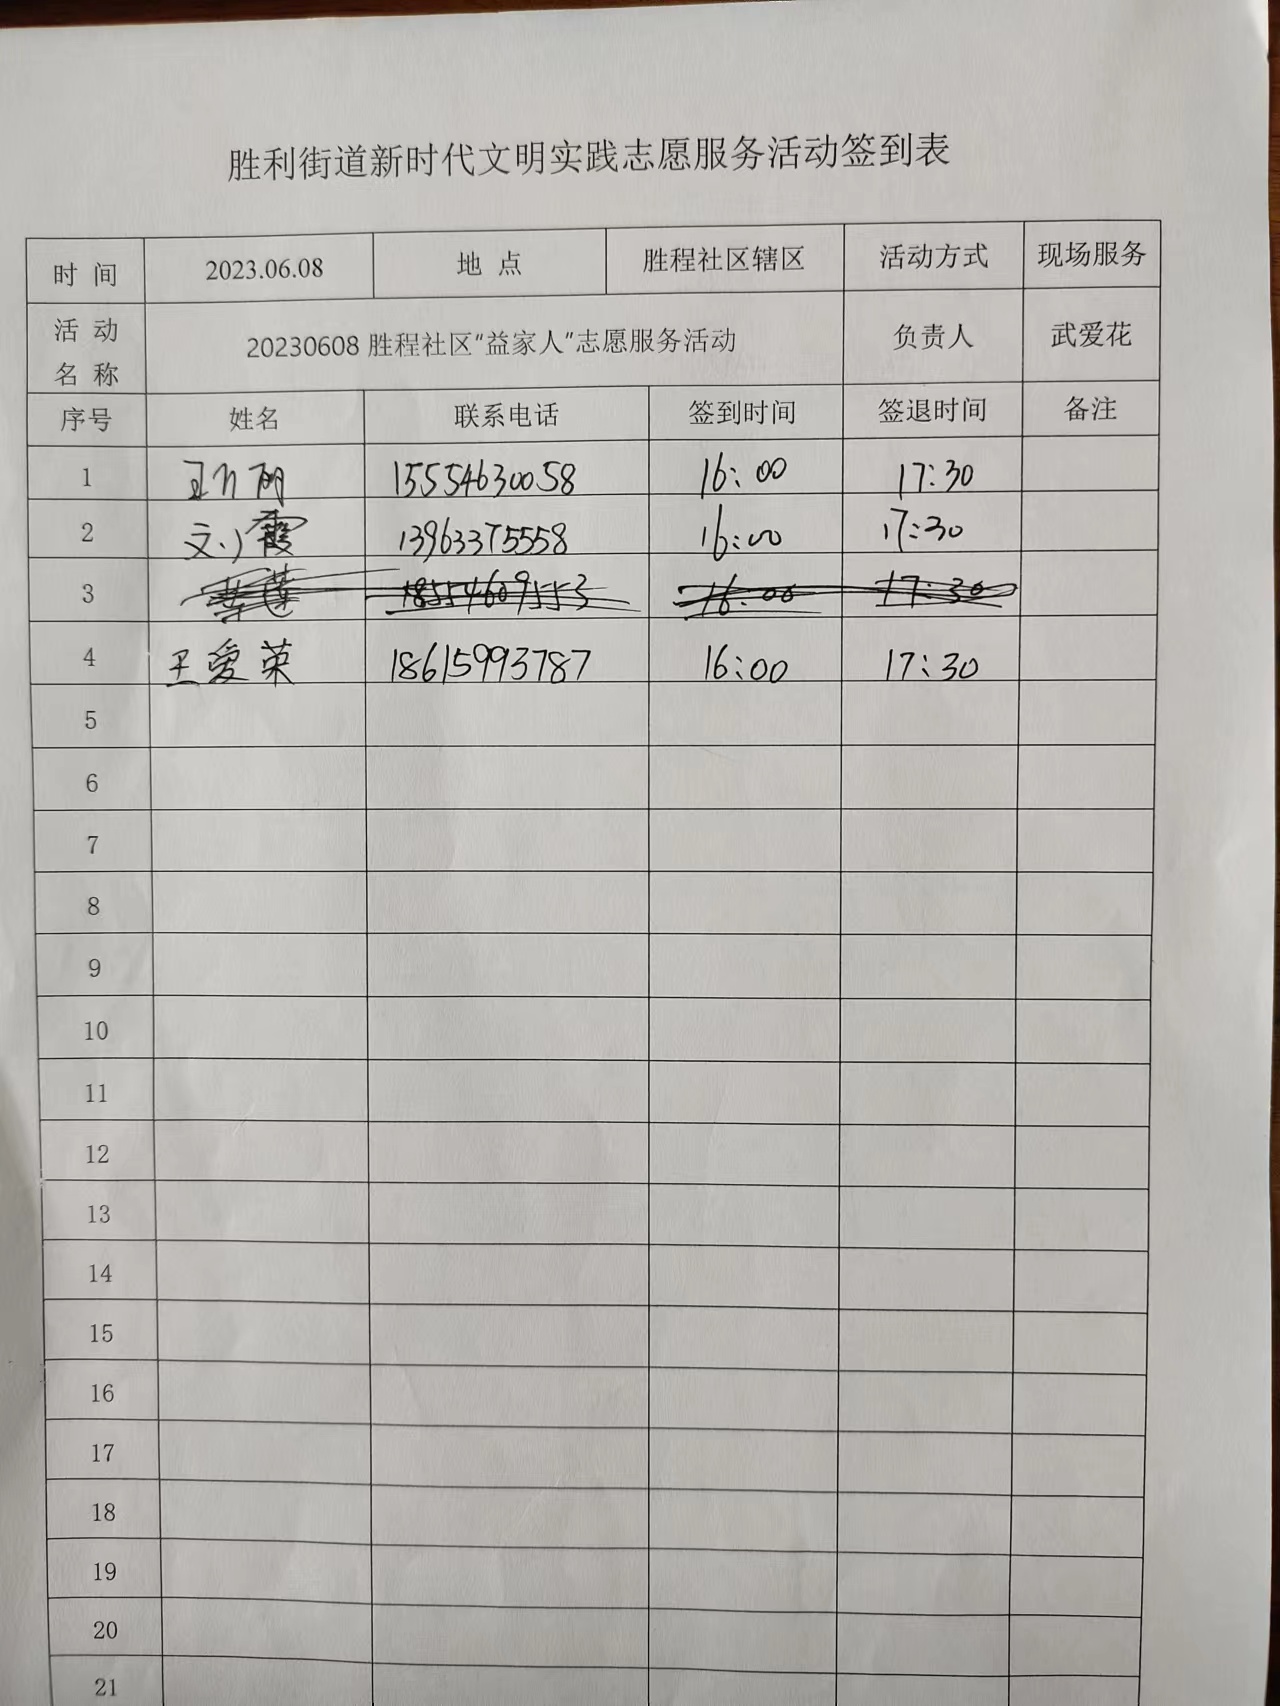 胜利街道新时代文明实践志愿服务活动签到表
时 间 2023.06.08 地 点 胜程社区辖区 活动方式 现场服务
活 动 名 称 20230608 胜程社区“益家人”志愿服务活动 负责人 武爱花
序号 姓名 联系电话 签到时间 签退时间 备注
1 15554630058 16:00 17:30
2 13963375558 16:00 17:30
3 16:00 17:30
4 王爱荣 18615993787 16:00 17:30
5
6
7
8
9
10
11
12
13
14
15
16
17
18
19
20
21